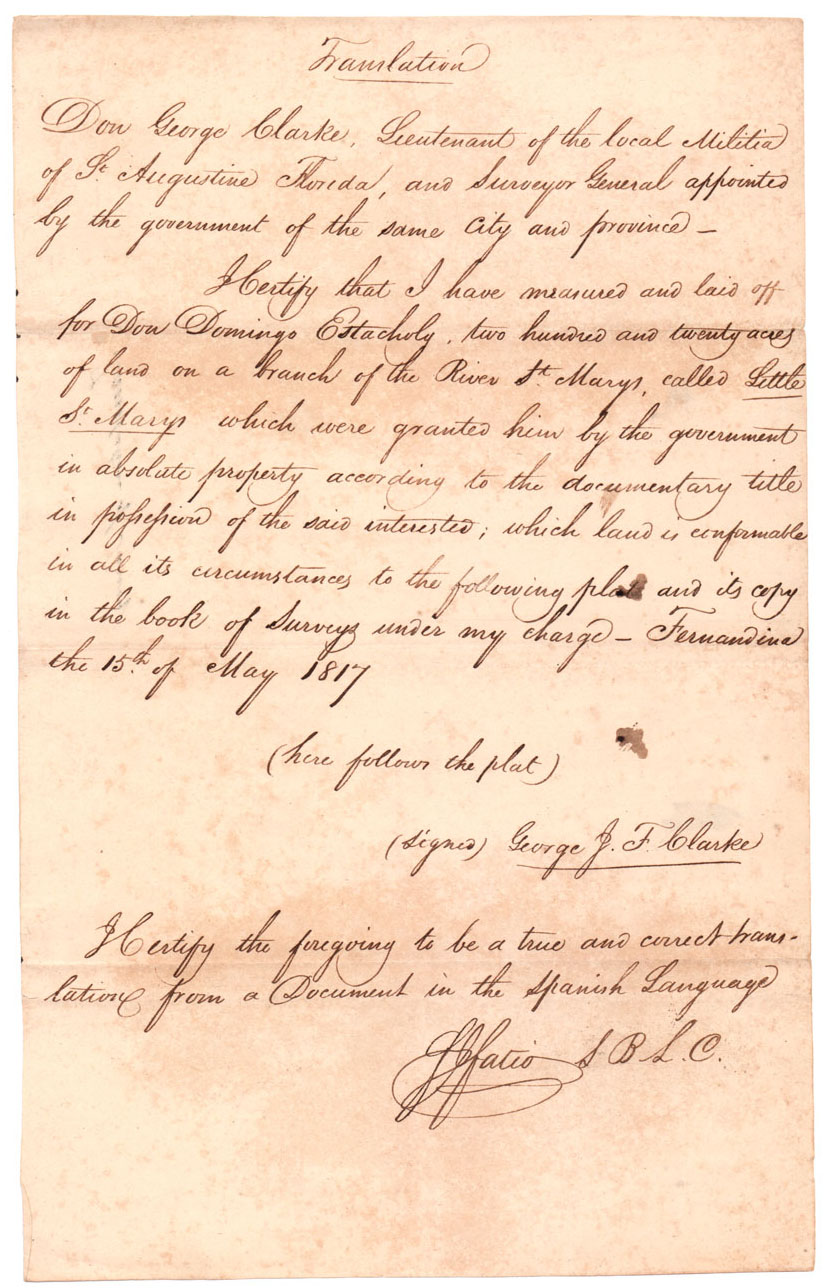 Translation
Don George Clarke, Lieutenant of the local Militia
of St. Augustine Florida, and Surveyor General appointed
by the government of the same City and province –
I Certify that I have measured and laid off
for Don Domingo Estacholy, two hundred and twenty acres
of land on a branch of the River St. Marys, called Little
St. Marys which were granted him by the government
in absolute property according to the documentary title
in possession of the said interested; which land is conformable
in all its circumstances to the following plat and its copy
in the book of Surveys under my charge – Fernandina
the 15th of May 1817
(here follows the plat)
(signed) George J. F. Clarke
I Certify the foregoing to be a true and correct trans-
lation from a Document in the Spanish Language
Fatio S B L. C.